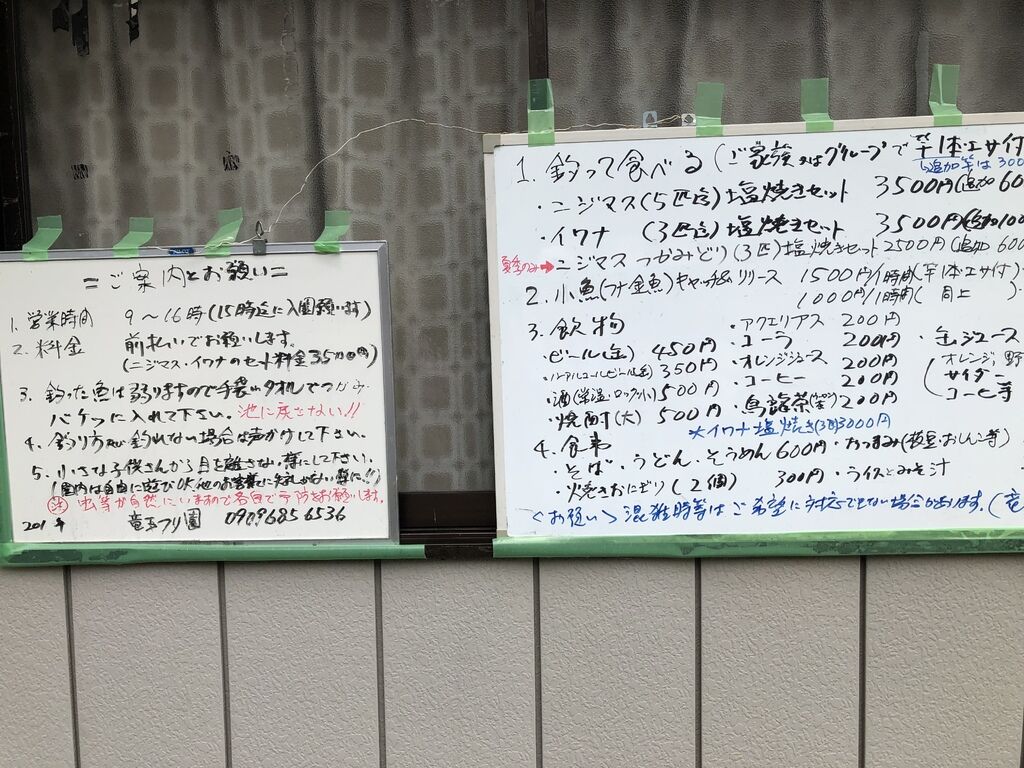 =ご案内とお願い=
1. 営業時間 9〜16時(15時迄に入園願います)
2. 料金 前払いでお願いします。
(ニジマス・イワナのセット料金3500円)
3. 釣った魚は弱りますので手袋かタオルでつかみ
バケツに入れて下さい。池に戻さない!!
4. 釣り方や釣れない場合は声かけして下さい。
5. 小さな子供さんから目を離さない様にして下さい。
(園内は自由に遊びOK他のお客様に
虫等が自然にいますので各自で予防をお願いします。
竜王フリ園 09096856536
1. 釣って食べる(ご家族又はグループで 竿1本・エサ付
追加竿は300
・ニジマス(5匹迄)塩焼きセット 3500円(追加60
・イワナ (3匹迄)塩焼きセット 3500円(追加100
夏季のみ→ニジマス つかみどり(3匹)塩焼きセット2500円(追加600
2. 小魚(フナ・金魚)キャッチ&リリース 1500円/1時間(竿1本・エサ付)
1000円/1時間( 同上 )
3. 飲物
・ビール(缶) 450円
・ノンアルコールビール(缶) 350円
・酒(常温・ロック小)500円
・焼酎(大) 500円
・アクエリアス 200円
・コーラ 200円
・オレンジジュース 200円
・コーヒー 200円
・烏龍茶 200円
・缶ジュース
(オレンジ、野
サイダー
コーヒー等
*イワナ塩焼き(3匹)3000円
4. 食事
・そば・うどん・そうめん 600円・おつまみ(枝豆・おしんこ等)
・焼きおにぎり(2個) 300円・ライスとみそ汁
<お願い>混雑時等はご希望に対応できない場合があります。(竜